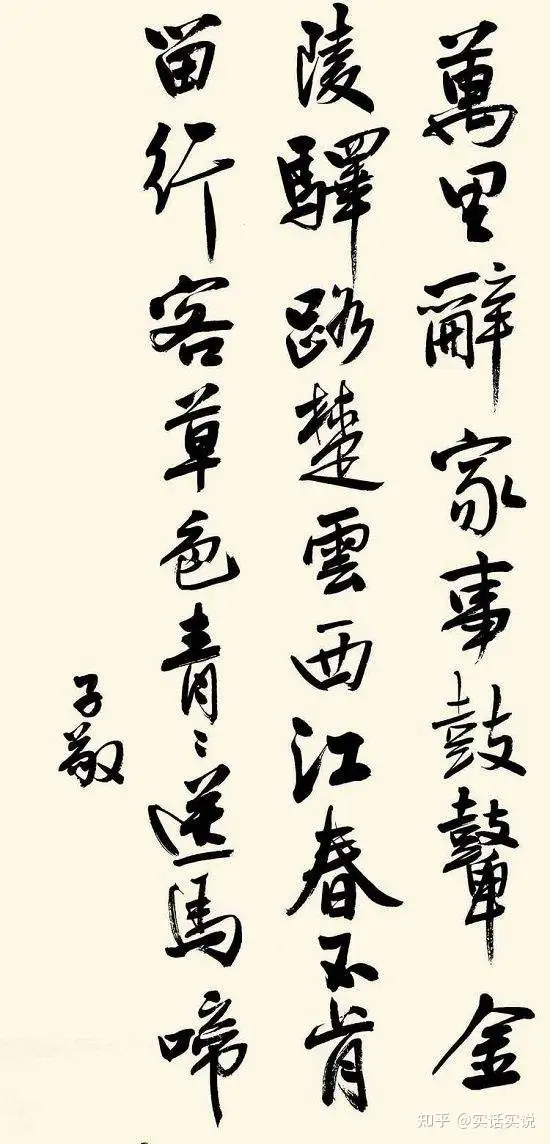 萬里辭家事鼓鼙金
陵驛路楚雲西江春不肯
留行客草色青〻送馬啼
子敬
知乎 @实话实说